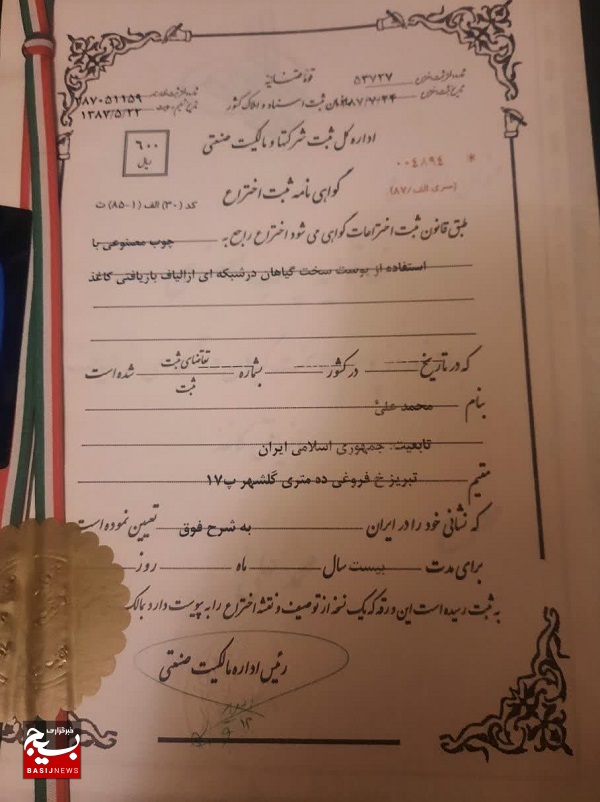 قوه قضائیه
شماره ثبت اختراع ۵۳۷۲۷
تاریخ ثبت اختراع ۱۳۸۷/۷/۲۴
سازمان ثبت اسناد و املاک کشور
۳۸۷۰۵۱۱۵۹
۱۳۸۷/۵/۲۲
اداره کل ثبت شرکتها و مالکیت صنعتی
۶۰۰
ریال
* ۰۰۴۸۹۴
(سری الف/۸۷)
گواهی نامه ثبت اختراع
کد (۳۰) الف (۱-۸۵) ت
طبق قانون ثبت اختراعات گواهی می شود اختراع راجع به چوب مصنوعی با
استفاده از پوست سخت گیاهان درشبکه ای ازالیاف بازیافتی کاغذ
که در تاریخ در کشور بشماره تقاضای ثبت شده است
ثبت
بنام محمد علی
تابعیت: جمهوری اسلامی ایران
مقیم تبریز خ فروغی ده متری گلشهر پ۱۷
که نشانی خود را در ایران به شرح فوق تعیین نموده است
برای مدت بیست سال ماه روز
به ثبت رسیده است این ورقه که یک نسخه از توصیف و نقشه اختراع را به پیوست دارد بمالک
رئیس اداره مالکیت صنعتی
خبرگزاری
بسیج
BASIJNEWS